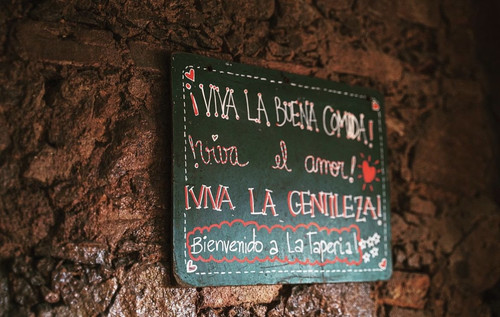 ¡VIVA LA BUENA COMIDA!
¡Viva el amor!
¡VIVA LA GENTILEZA!
Bienvenido a La Taperia!